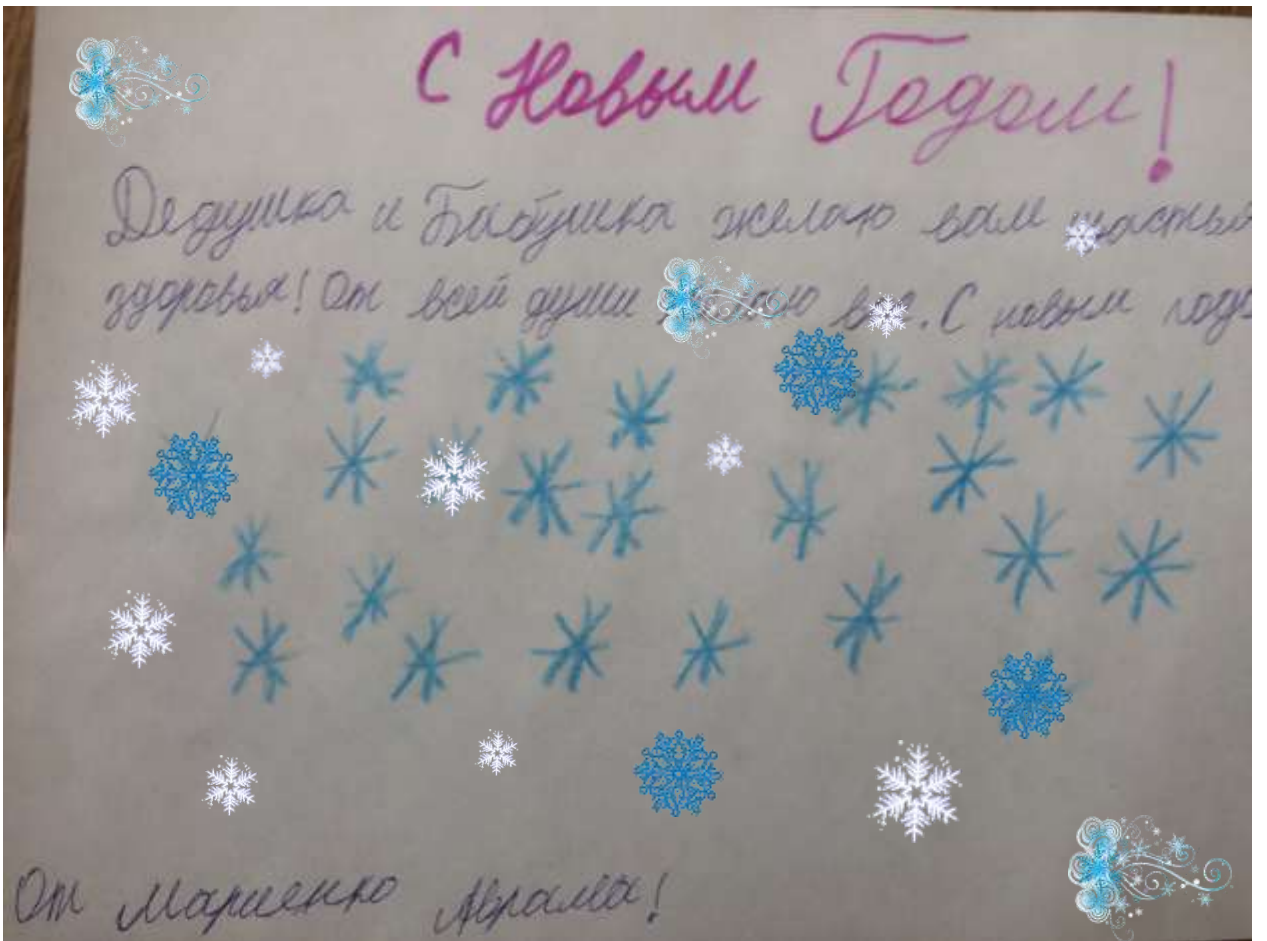 С Новым Годом!
Дедушка и Бабушка желаю вам счастья
здоровья! От всей души вас. С новым годо
От Мариенко Аврама!